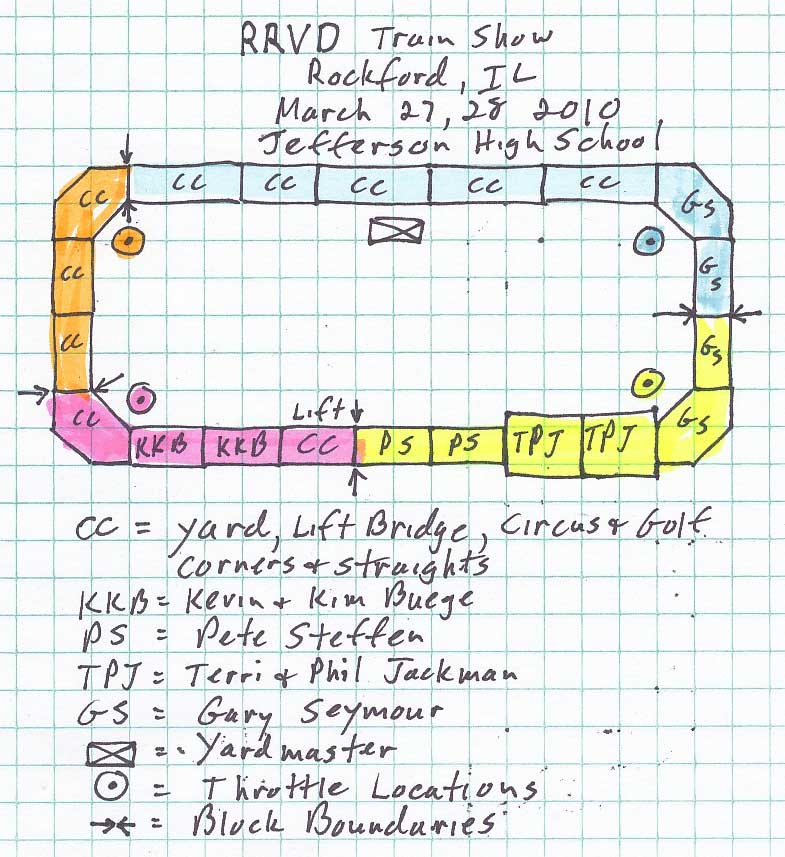 RRVD Train Show
Rockford, IL
March 27, 28 2010
Jefferson High School
CC CC CC CC CC CC GS
CC GS
CC GS
CC Lift GS
KKB KKB CC PS PS TPJ TPJ
CC = Yard, Lift Bridge, Circus & Golf
Corners & straights
KKB = Kevin & Kim Buege
PS = Pete Steffen
TPJ = Terri & Phil Jackman
GS = Gary Seymour
= Yardmaster
= Throttle Locations
= Block Boundaries